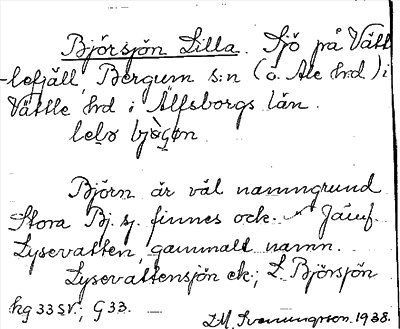 Björsjön Lilla. Sjö på Vätt
-lefjäll, Bergum s:n (o. Ale hrd) i
Vättle hrd i Älfsborgs län.
Björn är väl namngrund
Stora Bj. sj. finnes ock. Jämf.
Lysevatten, gammalt namn.
Lysevattensjön ek; L. Björsjön
kg 33 SV; G 33.
1938.